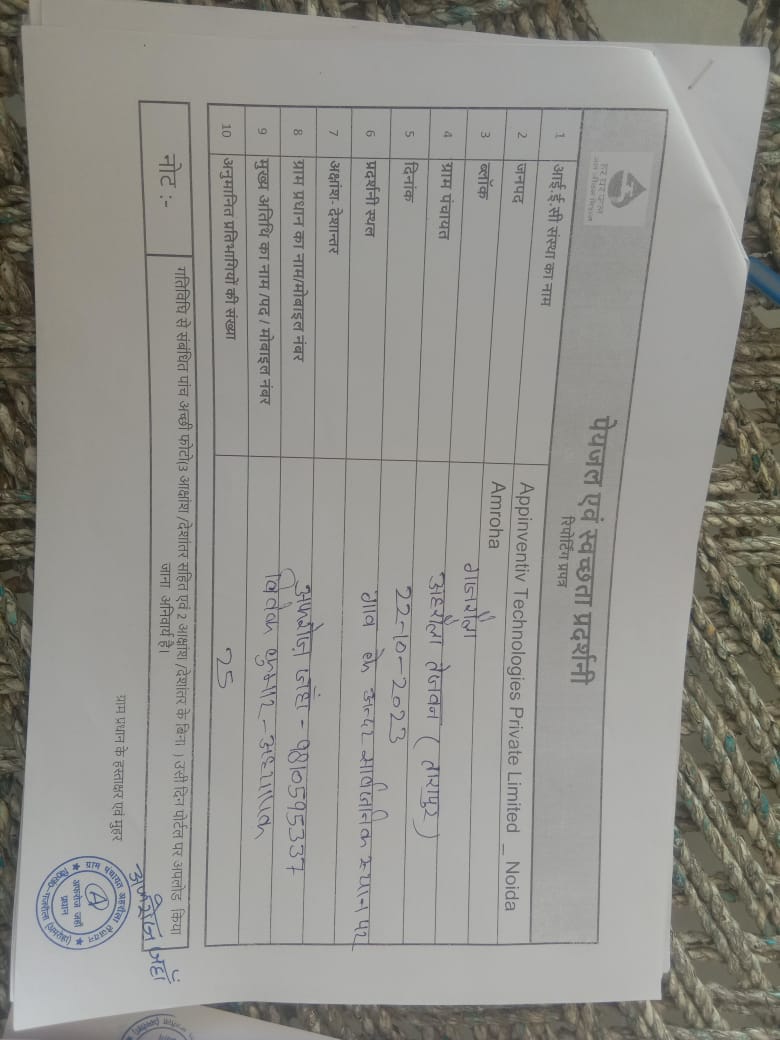 हर घर जल
जल जीवन मिशन
पेयजल एवं स्वच्छता प्रदर्शनी
रिपोर्टिंग प्रपत्र
1 आई.ई.सी संस्था का नाम Appinventiv Technologies Private Limited _ Noida
2 जनपद Amroha
3 ब्लॉक गजरौला
4 ग्राम पंचायत अहरौला तेजवन ( तारापुर )
5 दिनांक 22-10-2023
6 प्रदर्शनी स्थल गाव के अन्दर सार्वजनिक स्थान पर
7 अक्षांश- देशान्तर
8 ग्राम प्रधान का नाम/मोबाइल नंबर अफरोज जहाँ - 9810595337
9 मुख्य अतिथि का नाम /पद / मोबाइल नंबर विवेक कुमार - अध्यापक
10 अनुमानित प्रतिभागियों की संख्या 25
नोट :- गतिविधि से संबंधित पांच अच्छी फोटो(3 आक्षांश /देशांतर सहित एवं 2 आक्षांश /देशांतर के बिना ) उसी दिन पोर्टल पर अपलोड किया
जाना अनिवार्य है।
ग्राम प्रधान के हस्ताक्षर एवं मुहर
अफरोज जहाँ
ग्राम पंचायत अहरौला तेजवन
अफरोज जहाँ
प्रधान
वि०ख०-गजरौला (अमरोहा)